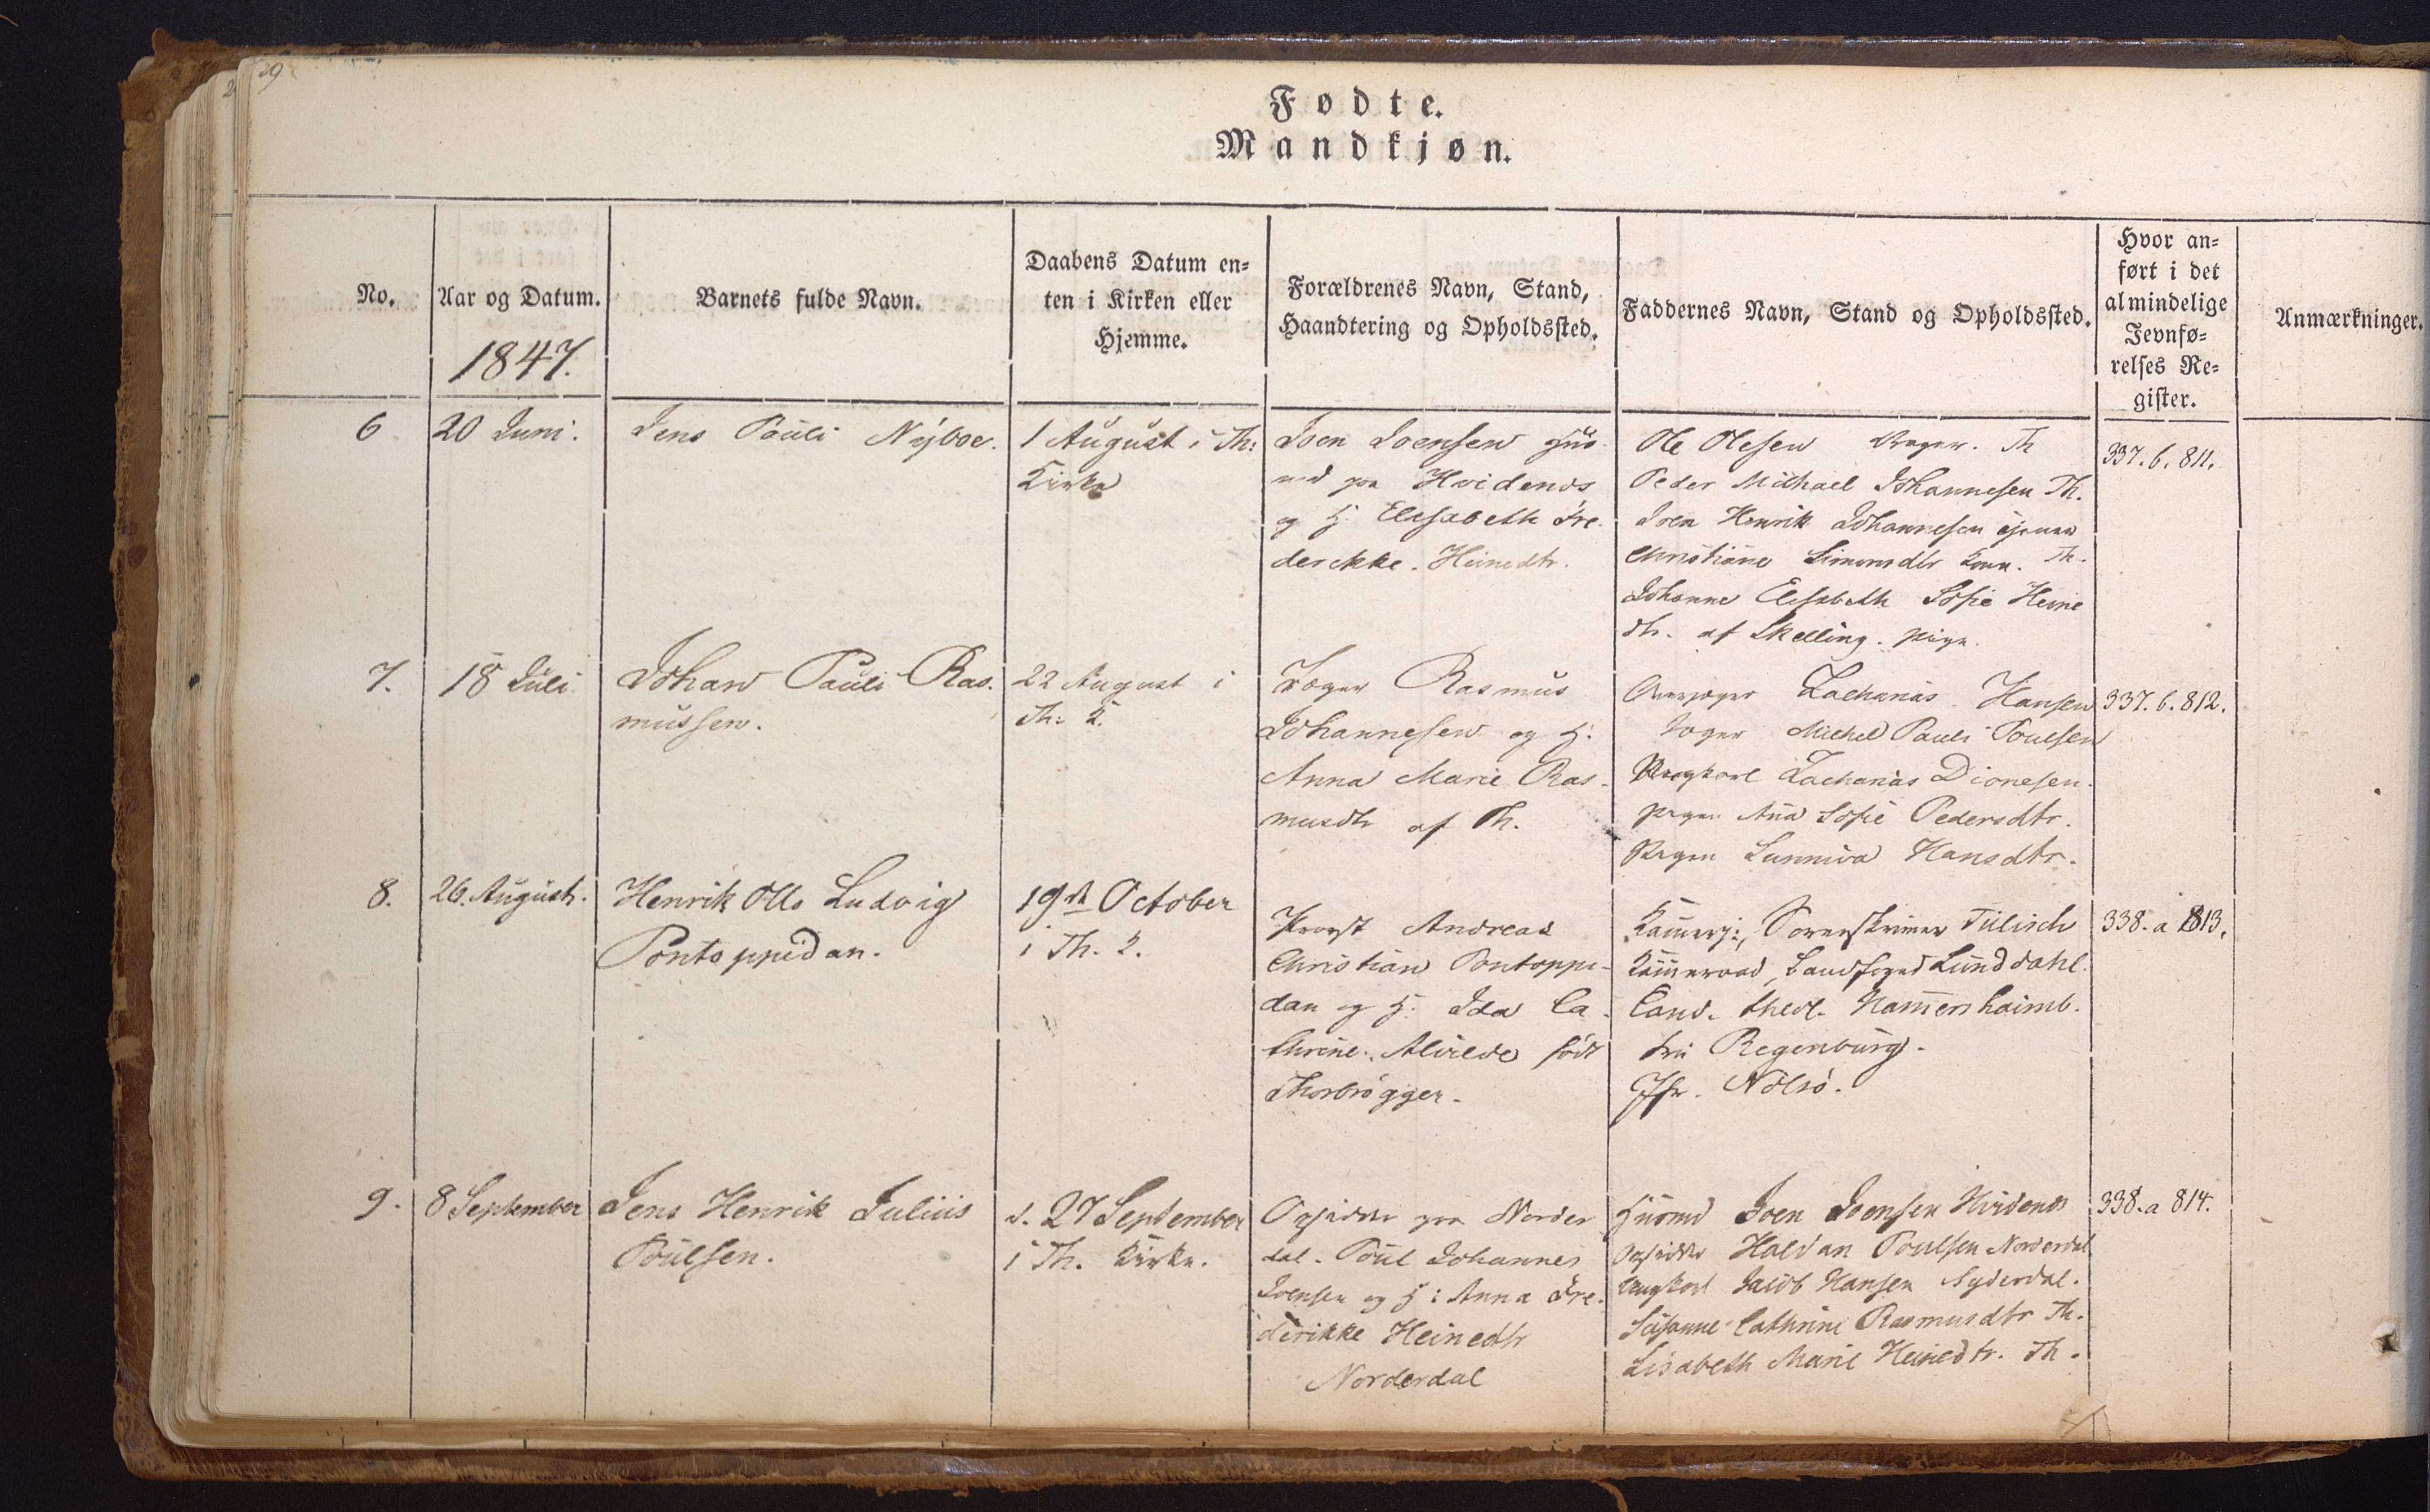 29
Fødte.
Mandkjøn.
No.
Aar og Datum.
1847.
Barnets fulde Navn.
Daabens Datum en=
ten i Kirken eller
Hjemme.
Forældrenes Navn, Stand,
Haandtering og Opholdssted.
Faddernes Navn, Stand og Opholdssted.
Hvor an=
ført i det
almindelige
Jevnfø=
relses Re=
gister.
Anmærkninger.
6
20 Juni.
Jens Pauli Nyboe.
1 August i Th:
Kirke
Joen Joensen Huus
md paa Hvidenæs
og H. Elisabeth Fre
derikke Heinedtr.
Ole Olesen Th
Peder Michael Johannesen Th.
Joen Henrik Johannesen
Christiane Simonsdtr Kone. Th.
Johanne Elisabeth Sofie Heine
dtr. af Skelling. pige.
337.b.811.
7.
18 Juli.
Johan Pauli Ras.
mussen.
22 August i
Th: K.
Rasmus
Johannesen og H.
Anna Marie Ras-
musdtr af Th.
Zacharias Hansen
Michel Pauli Poulsen
Zacharias Dionesen.
pigen Aña Sofie Pedersdtr.
Pigen Sunniva Hansdtr.
337.b.812.
8.
26. August.
Henrik Otto Ludvig
Pontoppidan.
19de October
i Th. K.
Provst Andreas
Christian Pontoppi-
dan og H. Ida Ca-
thrine Alvilde født
Thorbrøgger.
Kammerj:, Sorenskriver Tillisch
Kammeraad, Landfoged Lunddahl.
Cand. theol. Hammershaimb.
Fru Regenburg.
Jfr. Nólsø.
338.a 813.
9.
8 September
Jens Henrik Julius
Poulsen.
d. 27 September
i Th. Kirke.
Opsidder paa Norder
dal. Poul Johannes
Joensen og H: Anna Fre.
derikke Heinedtr
Norderdal
Huusmd Joen Joensen Hvidenæs
Opsidder Haldan Poulsen Norderdal
Ungkarl Jacob Hansen Syderdal.
Susanne Cathrine Rasmusdtr Th.
Lisabeth Marie Heinedtr. Th.
338.a 814.